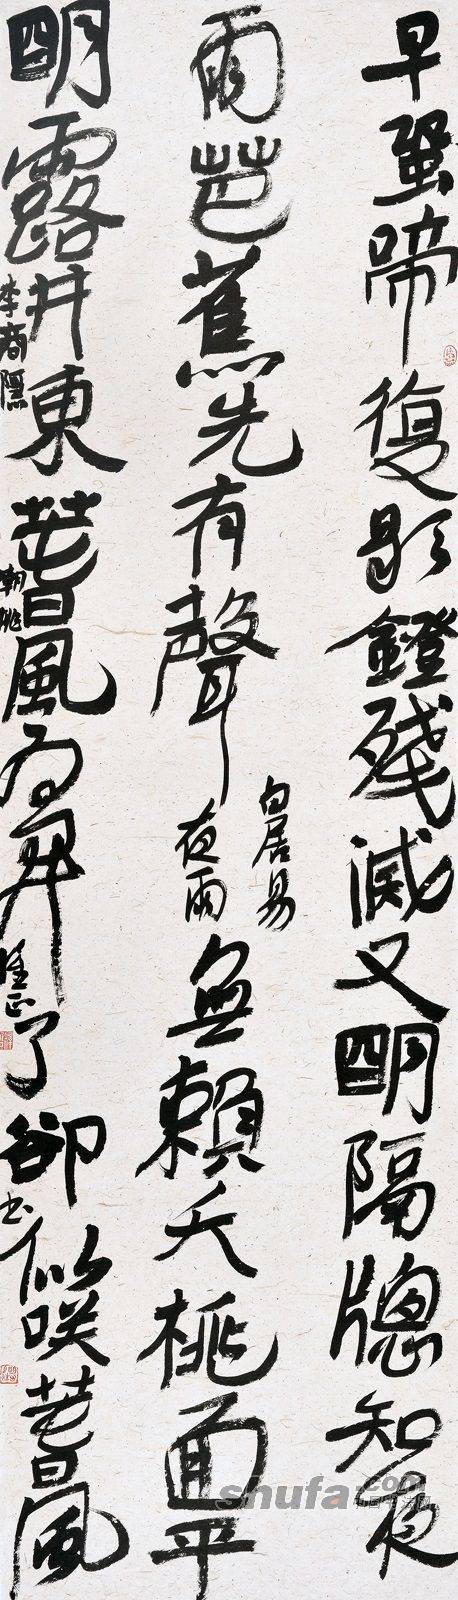 早蛩啼復歇鐙殘滅又明隔牕知夜
雨芭蕉先有聲
白居易
夜雨
無賴夭桃面平
明露井東萅風為開了卻似咲萅風
李商隱
嘲桃
正
书
shufa.com